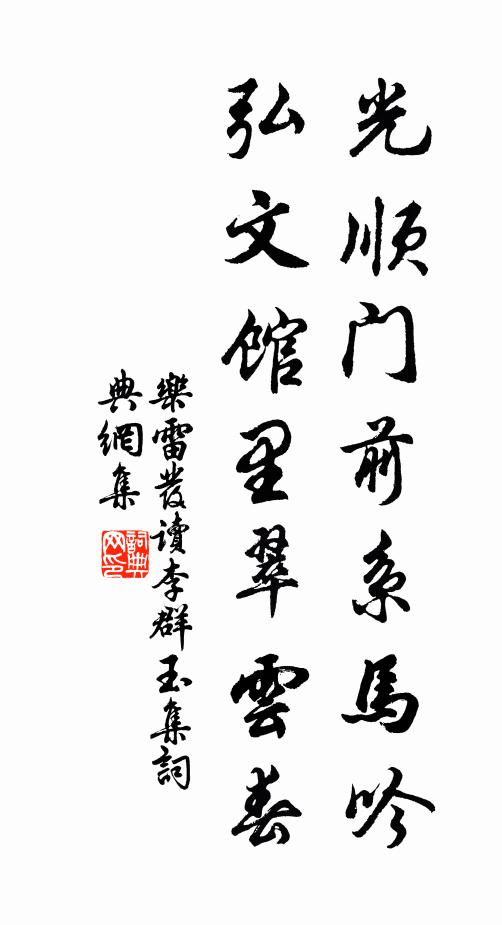 光顺门前系馬吟
弘文館里翠雲春
樂雷发讀李群玉集詞
典網集
詞典
网印